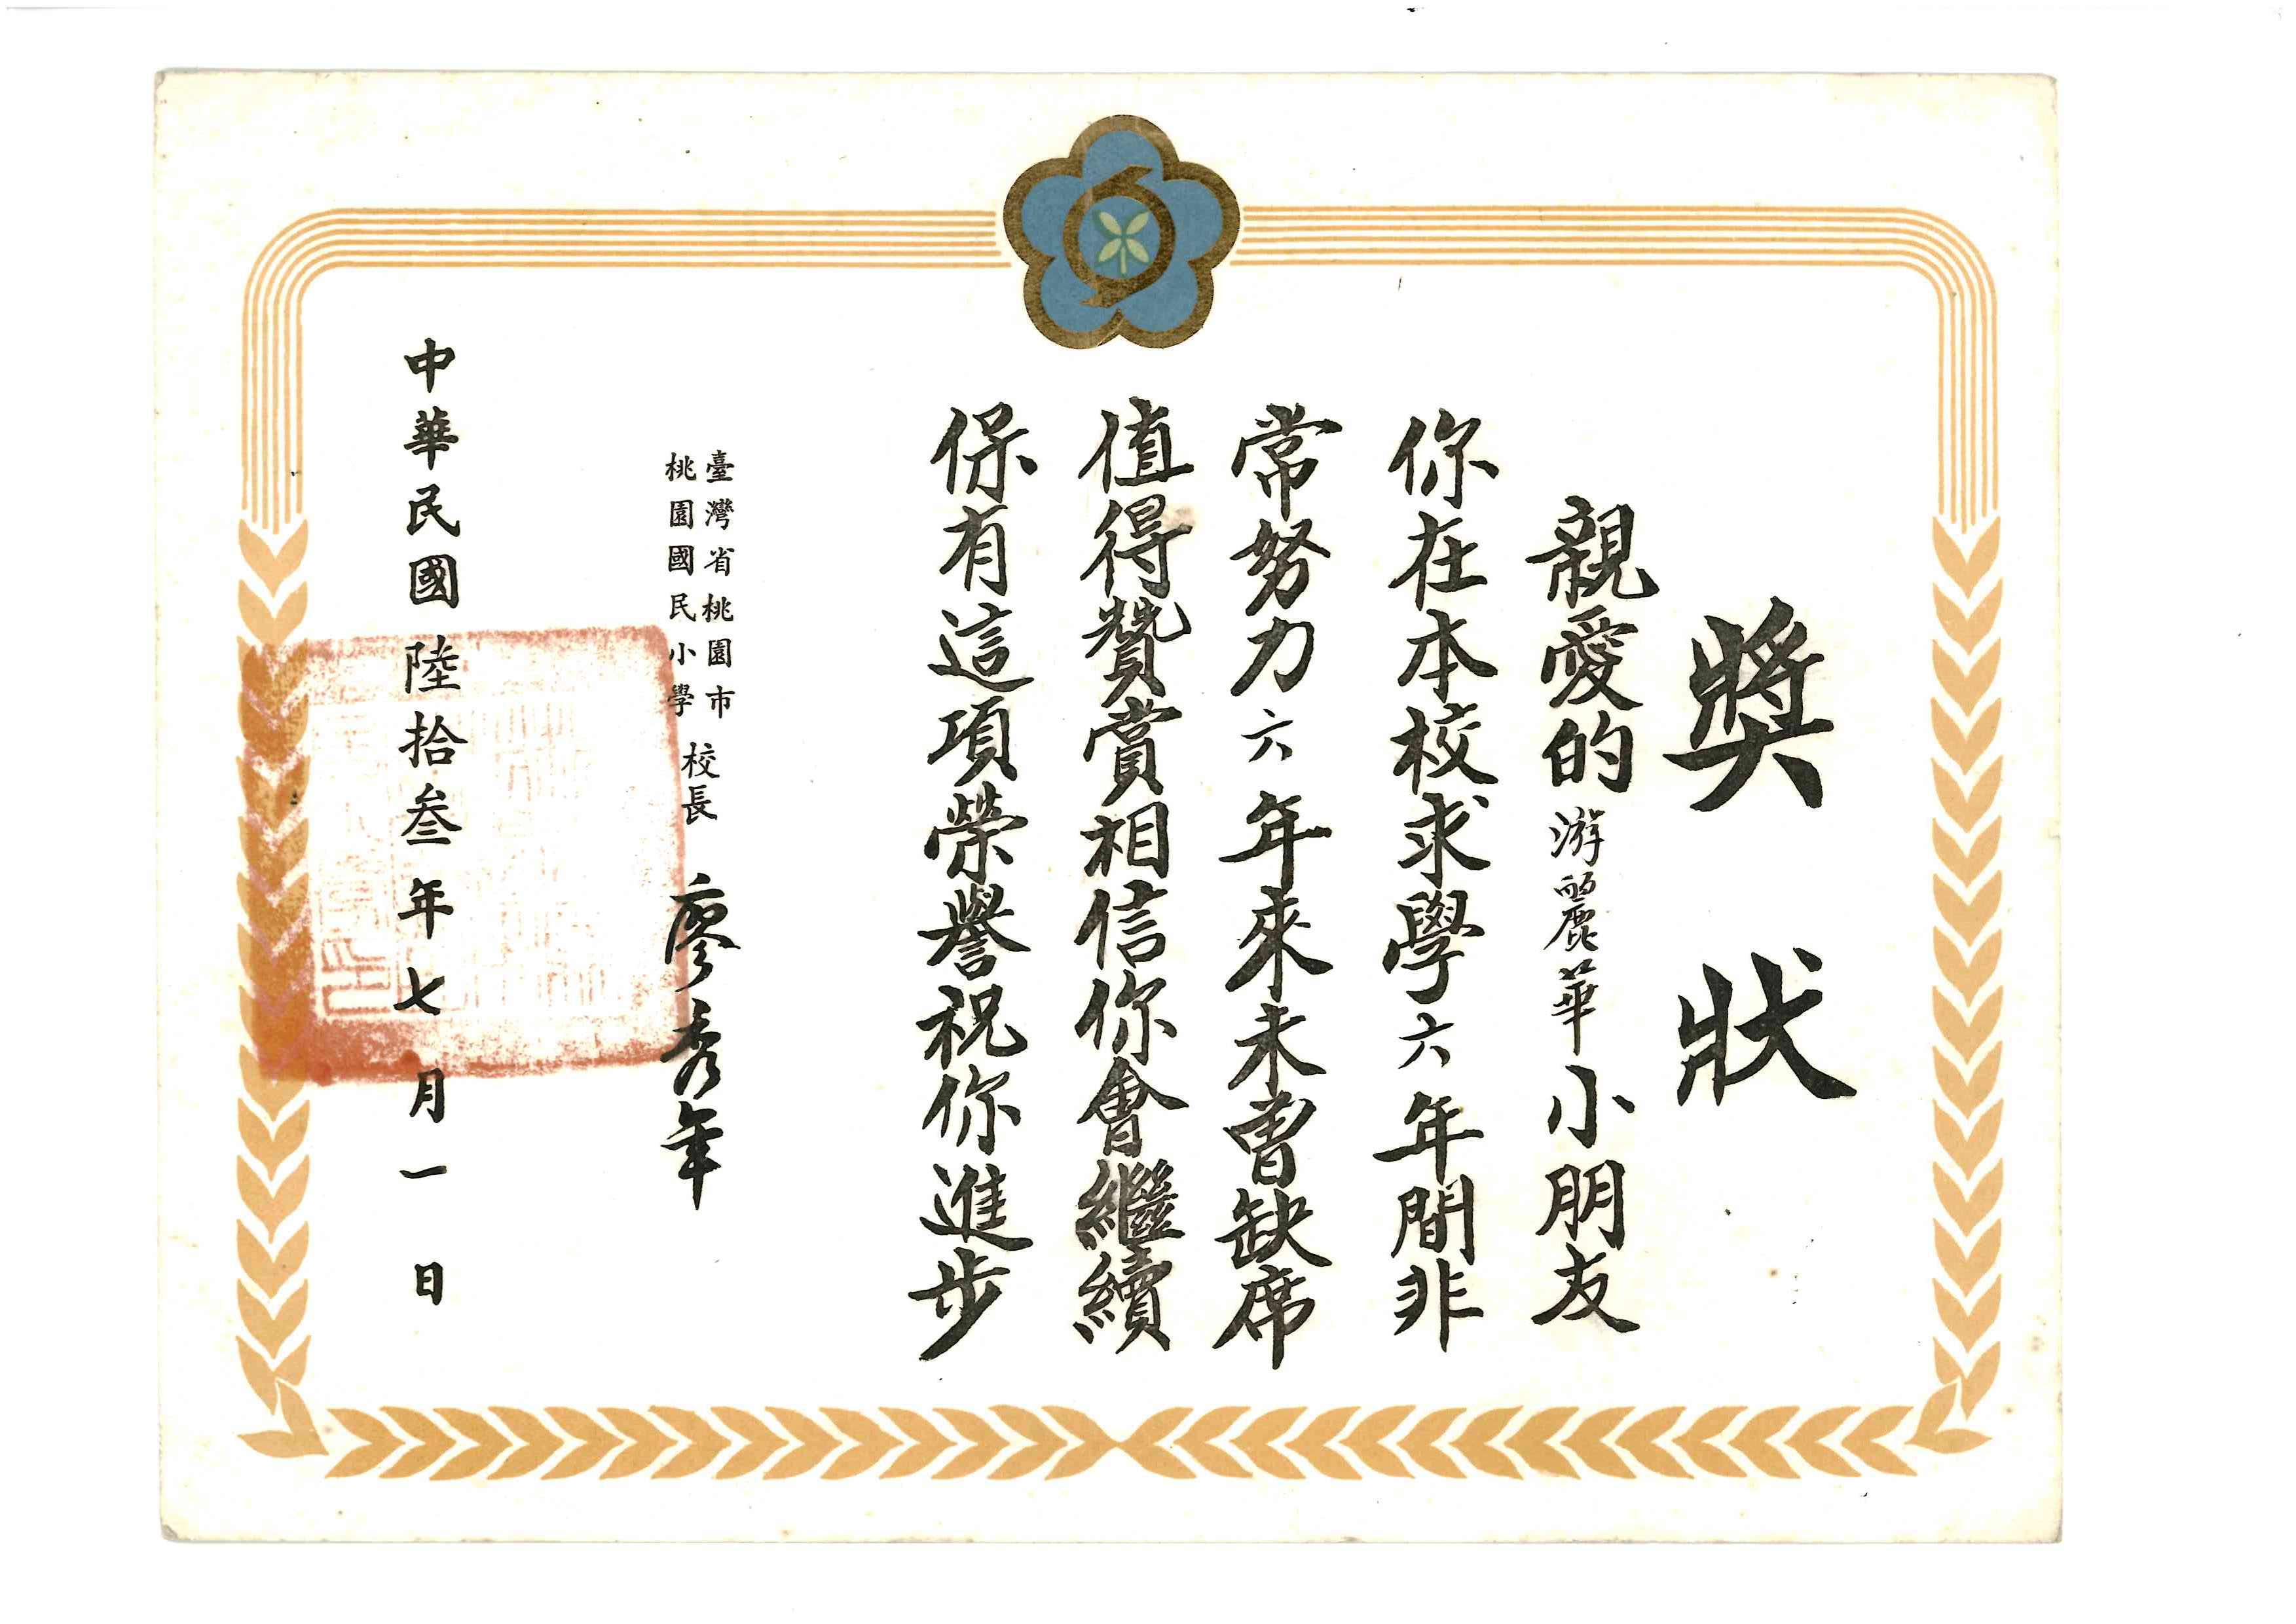 獎狀
親愛的游麗華小朋友
你在本校求學六年間非
常努力六年來未曾缺席
值得贊賞相信你會繼續
保有這項榮譽祝你進步
臺灣省桃園市
桃園國民小學
校長 廖秀年
中華民國陸拾叁年七月一日